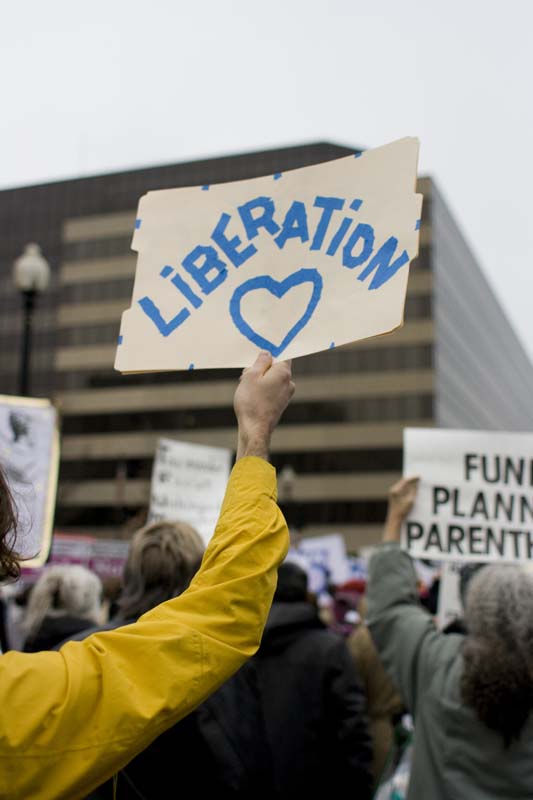 LiBERATiON
FUN
PLANN
PARENTH